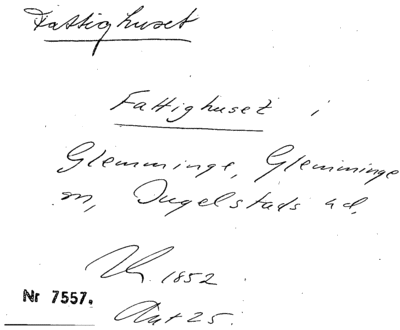 Fattighuset
Fattighuset i
Glemminge, Glemminge
sn, Ingelstads hd.
1852
Nr 7557.
Ant 25.